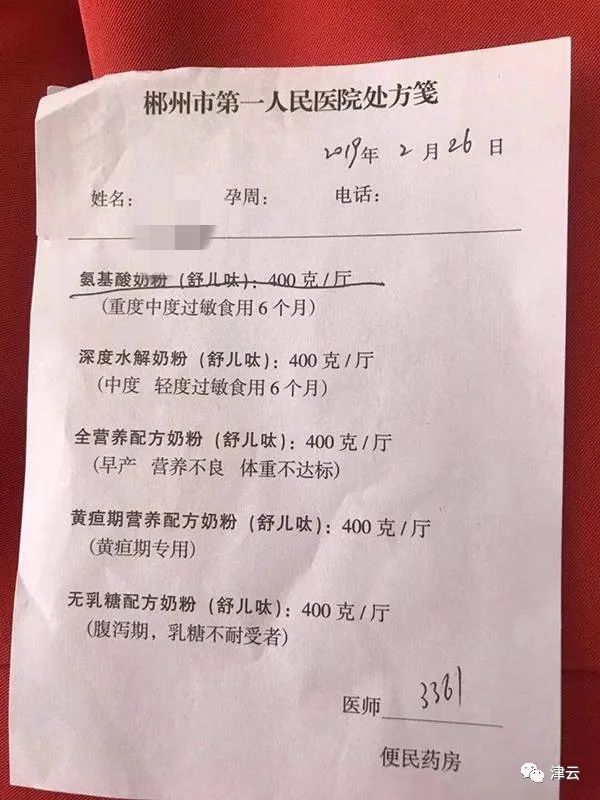 郴州市第一人民医院处方笺
2019年 2月26日
姓名： 孕周： 电话：
氨基酸奶粉（舒儿呔）：400克/厅
（重度中度过敏食用6个月）
深度水解奶粉（舒儿呔）：400克/厅
（中度 轻度过敏食用6个月）
全营养配方奶粉（舒儿呔）：400克/厅
（早产 营养不良 体重不达标）
黄疸期营养配方奶粉（舒儿呔）：400克/厅
（黄疸期专用）
无乳糖配方奶粉（舒儿呔）：400克/厅
（腹泻期，乳糖不耐受者）
医师 3361
便民药房
津云